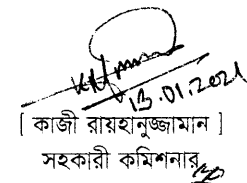 13.01.2021
[ কাজী রায়হানুজ্জামান ]
সহকারী কমিশনার